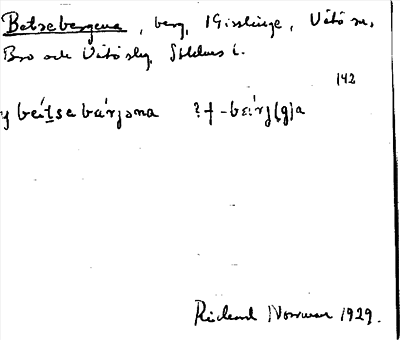 Betsebergena, berg, Gisslinge, Vätö sn,
Bro och Vätö skg, Sthlms l.
142
y beítse bárjəna ? f -bɛárj(g)a
Rickard Norrman 1929.